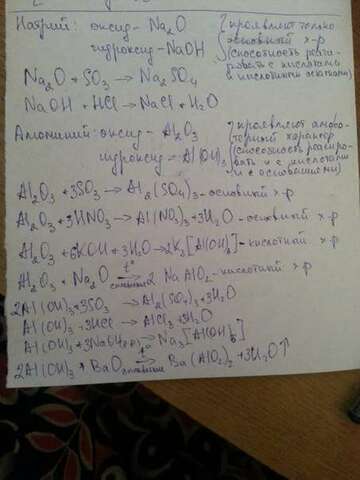 Натрий: оксид - Na₂O } проявляют только
основный х-р
гидроксид - NaOH (способность реаги-
ровать с кислотами
и кислотными остатками)
Na₂O + SO₃ → Na₂SO₄
NaOH + HCl → NaCl + H₂O
Алюминий: оксид - Al₂O₃ } проявляют амфо-
терный характер
гидроксид - Al(OH)₃ (способность реагиро-
вать и с кислотами
и с основаниями)
Al₂O₃ + 3SO₃ → Al₂(SO₄)₃ - основный х-р
Al₂O₃ + 3HNO₃ → Al(NO₃)₃ + 3H₂O - основный х-р
Al₂O₃ + 6KOH + 3H₂O → 2K₃[Al(OH)₆] - кислотный х-р
Al₂O₃ + Na₂O t° сплавление → 2 NaAlO₂ - кислотный х-р
2Al(OH)₃ + 3SO₃ → Al₂(SO₄)₃ + 3H₂O
Al(OH)₃ + 3HCl → AlCl₃ + 3H₂O
Al(OH)₃ + 3NaOH → Na₃[Al(OH)₆]
2Al(OH)₃ + BaO t° сплавление → Ba(AlO₂)₂ + 3H₂O↑